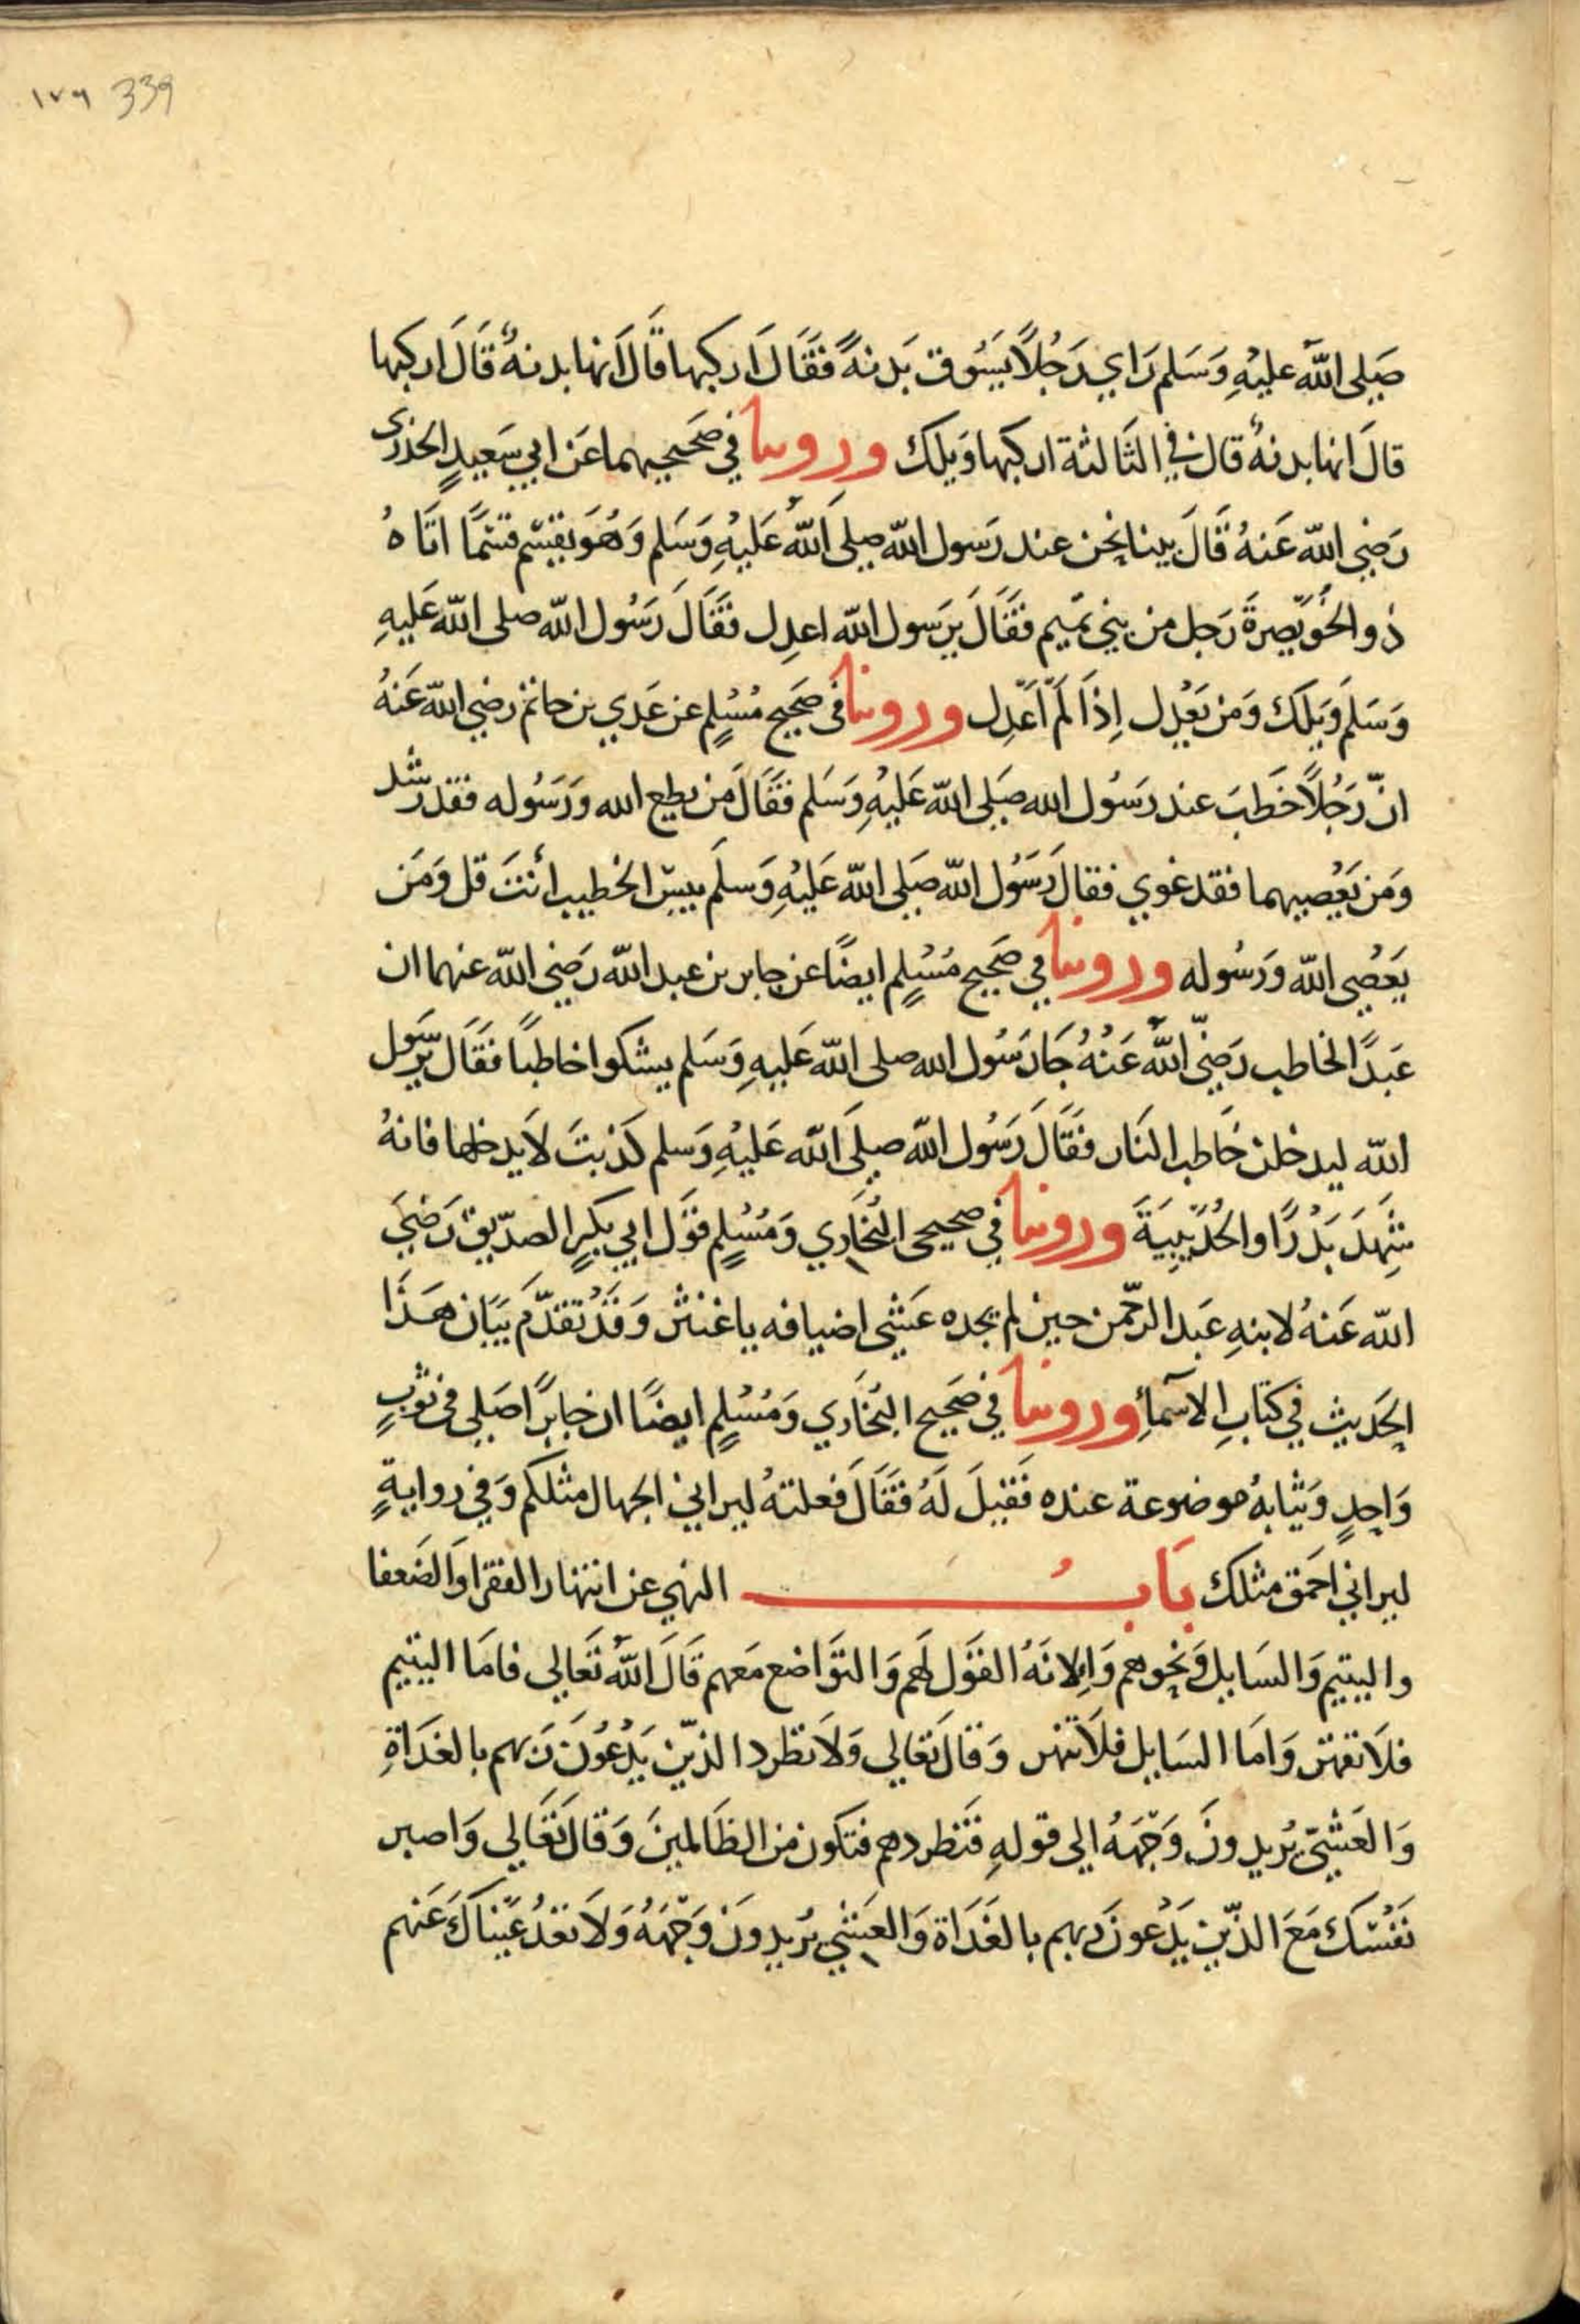 ١٧٩ 339
صَلى اللّه عليْهِ وَسَلم رَاي رَجُلاً يَسُوق بَدنةً فقَالَ اركبها قَالَ انها بدنةٌ قَالَ اركبها
قالَ انها بدنةٌ قال في الثالثة اركبها وَيلك وروينا في صَحيحيهما عَن ابي سَعيدٍ الخذرى
رَضي اللّه عَنهُ قَالَ بينا نحن عند رَسول اللّه صلى اللّهُ عَليْهِ وَسَلم وَهُوَ يقسّم قسْمًا اتَاهُ
ذو الخُوَيّصِرةَ رَجل من بني تميم فقَالَ يرَسول اللّه اعدِل فقَالَ رَسُول اللّه صلى اللّه عَليهِ
وَسَلمَ وَيلكَ وَمَن يَعْدِل اِذَا لَمْ اَعْدِل وروينا فى صَحيح مُسْلِم عن عَدي بن حاتم رضي اللّه عَنهُ
انّ رَجُلاً خَطبَ عند رَسُول الله صَلى اللّه عَليْهِ وَسَلم فقَالَ مَن يطع الله وَرَسُوله فقد رشد
وَمَن يَعْصِيهما فقد غوي فقالَ رَسَوُل اللّه صَلى اللّه عَليْهِ وَسلمَ بيسَ الخطيب أنتَ قل وَمَن
يَعْصِي اللّه وَرَسُوله وروينا في صَحيح مُسْلِم ايضًا عن جابر بن عبد اللّه رَضي اللّه عنهما ان
عَبدًا لخاطب رَضيّ اللّهُ عَنْهُ جَا رَسُول الله صلى اللّه عَليهِ وَسَلم يشكوا خاطبًا فقَالَ يرَسَول
اللّه ليدخلن خَاطب النَار فقَالَ رَسُول اللّه صلىَ اللّه عَليْهِ وَسلم كَذبتَ لاَ يدخلها فانهُ
شَهِدَ بَدْرًا والحُدَيْبِيَةَ وروينا في صحيحى البُخَاري وَمُسْلِم قوَل ابي بكرٍ الصدّيق رَضيَ
اللّه عَنهُ لابنهِ عَبد الرحّمن حين لم يجده عَشى اضيافه يا غنثر وَقدْ تقدّمَ بيَان هَذَا
الحَديث في كتابِ الاسمآءِ وروينا في صَحيح البُخَاري وَمُسْلِم ايضًا ان جابرًا صَلى فى ثوبٍ
وَاحِدٍ وَثيابهُ موضوعة عنده فقيلَ لَهُ فقَالَ فعلتهُ ليراني الجهال مثلكم وَفي روايةٍ
ليراني احَمق مثلك بَابُ النهي عن انتهار الفقرا وَالضَعفا
واليتيم وَالسَايل وَنحوهم وَاِلانةُ القوَل لَهم وَالتوَاضع مَعهم قَالَ اللّهُ تَعَالي فامَا اليتيم
فلاَ تقهر وَامَا السَايل فلاَ تنهر وَقالَ تعَالي وَلاَ تطرد الذيّن يَدْعُوَنَ رَبهم بالغدَاةِ
وَالعَشيّ يُريدونَ وَجْهَهُ الى قولهِ فَتطردهم فتكون من الظَالمينَ وَقالَ تعَالي وَاصبر
نَفْسَكَ مَعَ الذيّن يَدْعونَ ربهم بالغَدَاة وَالعَشي يُريدونَ وَجْهَهُ وَلاَ تعْدُ عَيْناكَ عَنهم